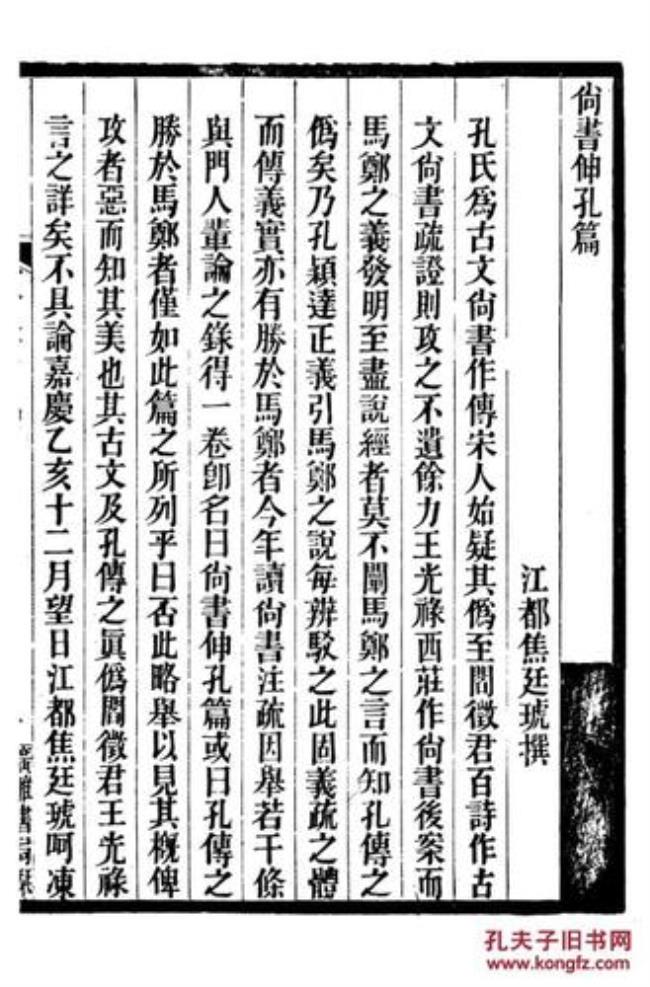 尚書伸孔篇
江都焦廷琥撰
孔氏爲古文尚書作傳宋人始疑其僞至閻徵君百詩作古
文尚書疏證則攻之不遺餘力王光祿西莊作尚書後案而
馬鄭之義發明至盡說經者莫不闡馬鄭之言而知孔傳之
僞矣乃孔穎達正義引馬鄭之說每辨駁之此固義疏之體
而傳義實亦有勝於馬鄭者今年讀尚書注疏因舉若干條
與門人輩論之錄得一卷卽名曰尚書伸孔篇或曰孔傳之
勝於馬鄭者僅如此篇之所列乎曰否此略舉以見其槪俾
攻者惡而知其美也其古文及孔傳之眞僞閻徵君王光祿
言之詳矣不具論嘉慶乙亥十二月望日江都焦廷琥呵凍
孔夫子旧书网
www.kongfz.com